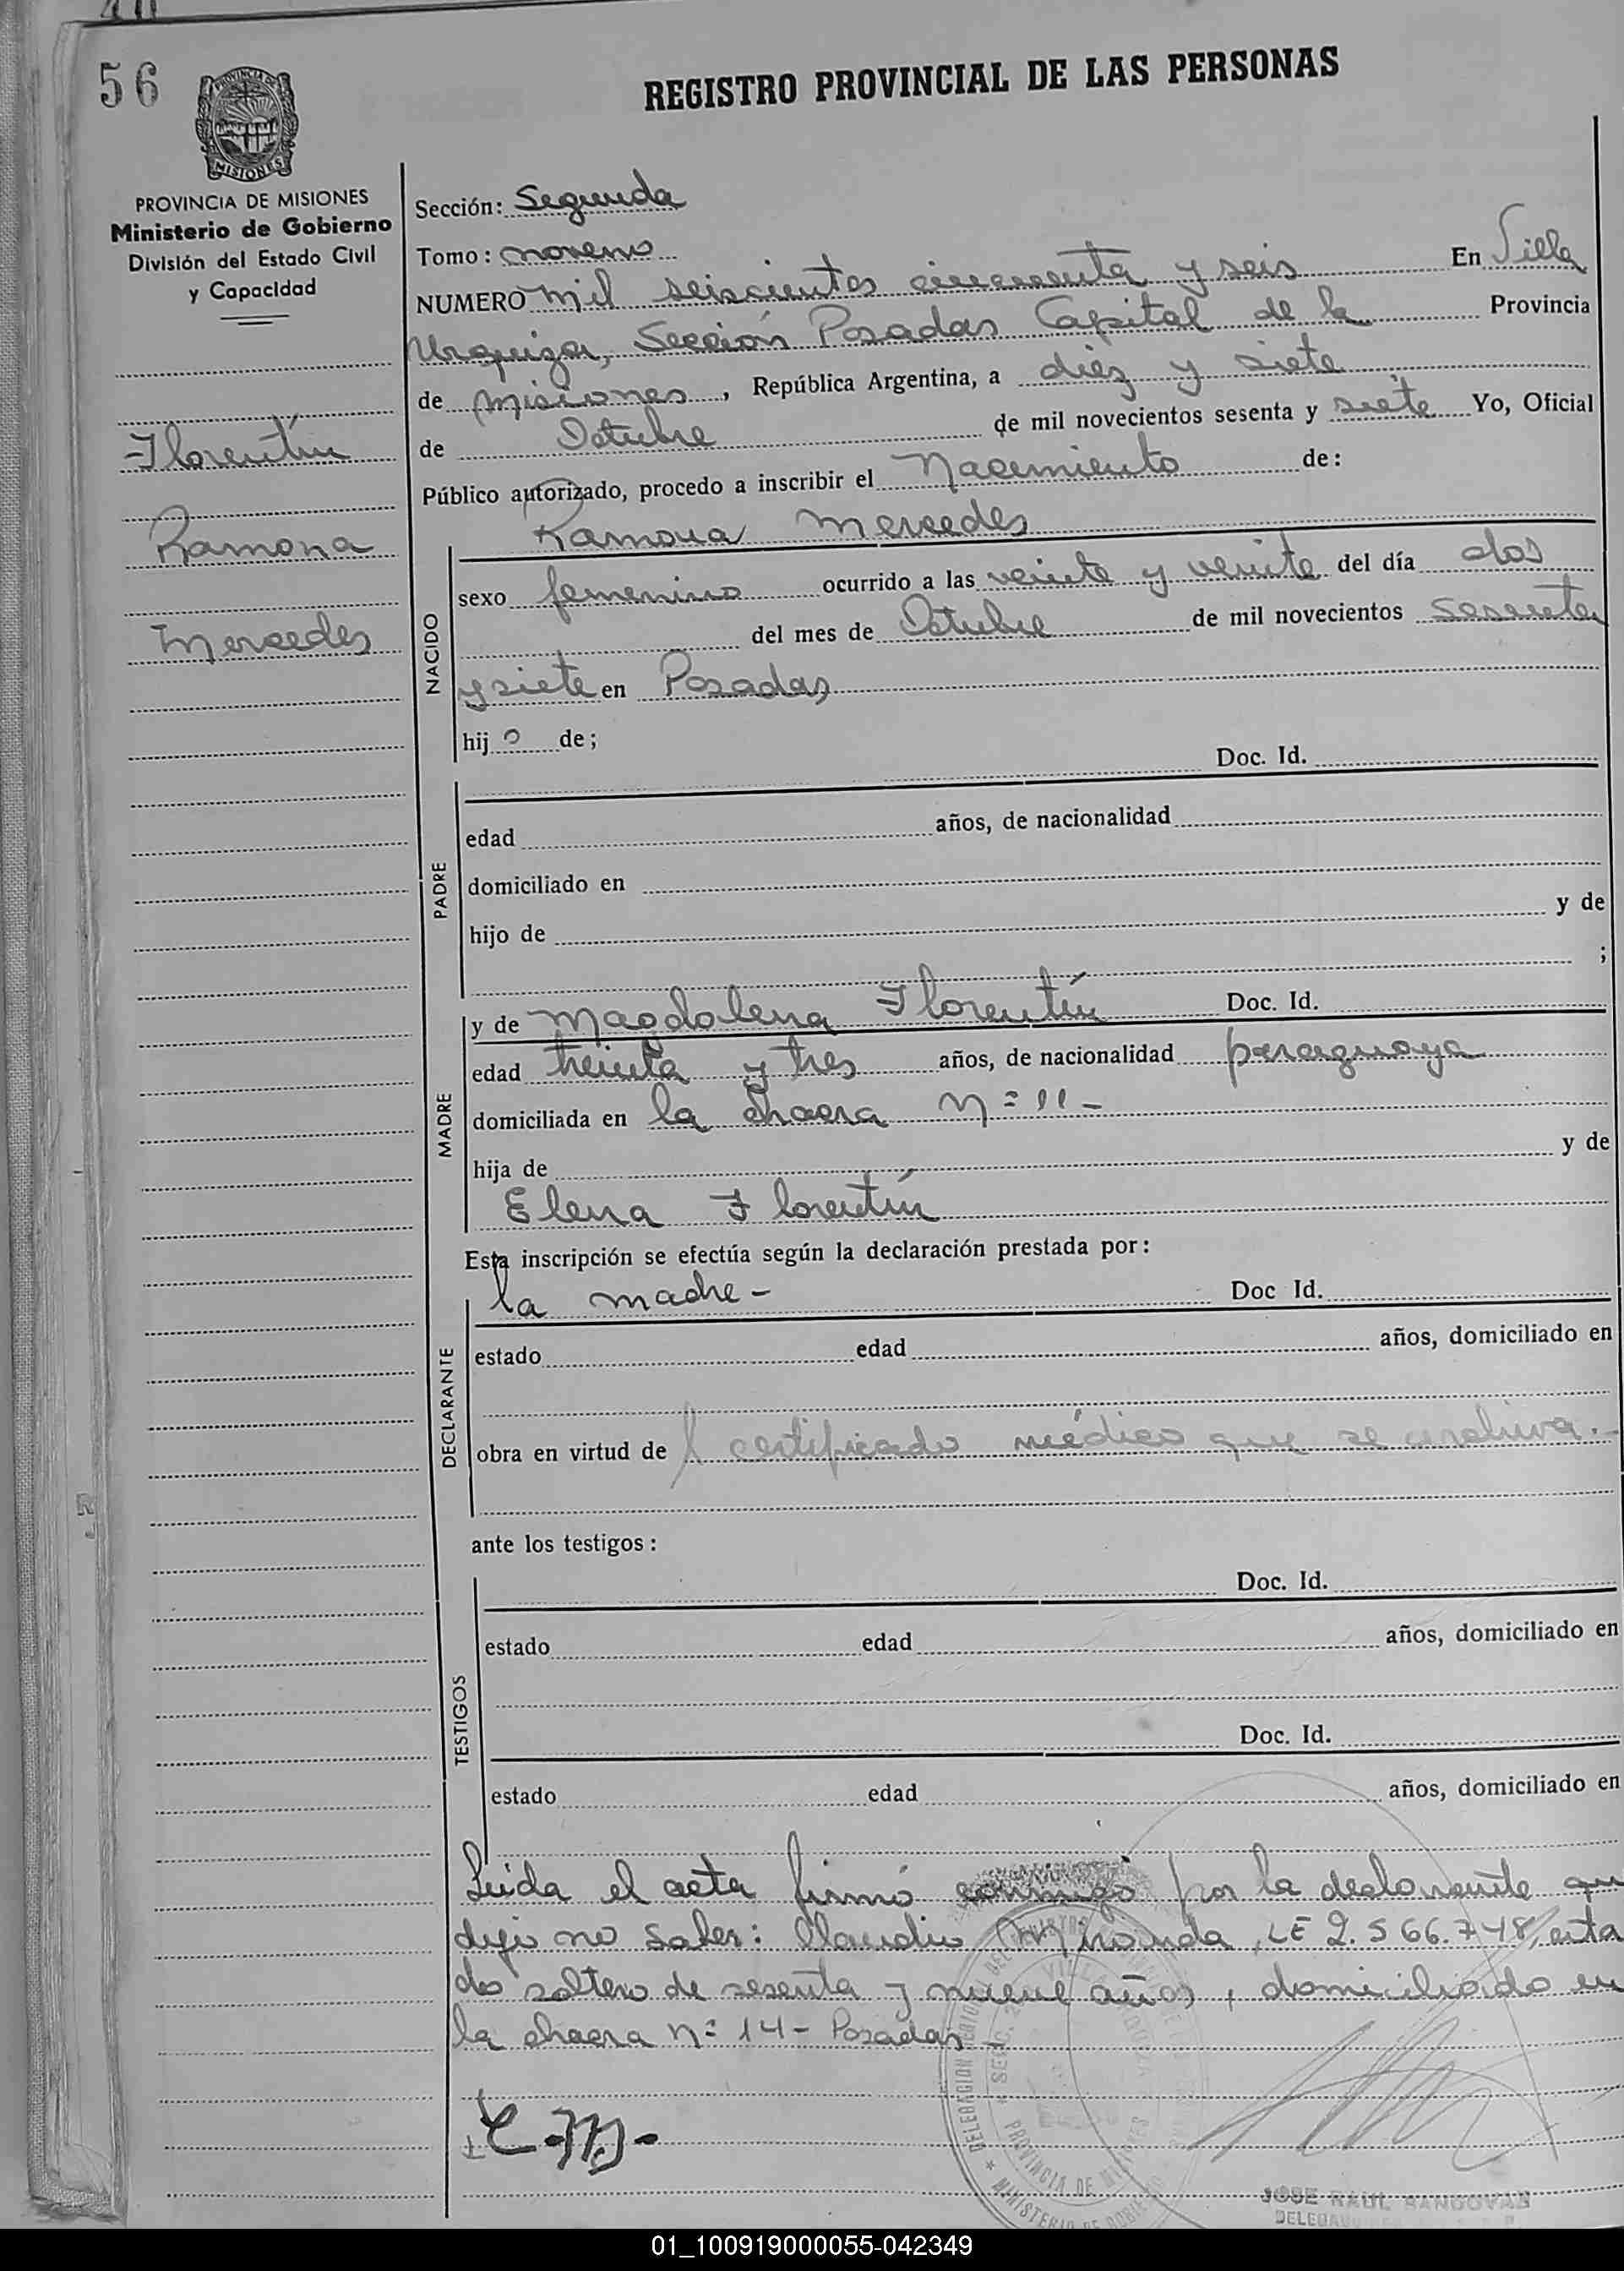 56
REGISTRO PROVINCIAL DE LAS PERSONAS
PROVINCIA DE
MISIONES
PROVINCIA DE MISIONES
Ministerio de Gobierno
División del Estado Civil
y Capacidad
Florentín
Ramona
Mercedes
Sección: Segunda
Tomo: noveno
NUMERO mil seiscientos cincuenta y seis En Villa
Urquiza, Sección Posadas Capital de la Provincia
de Misiones, República Argentina, a diez y siete
de Octubre de mil novecientos sesenta y siete Yo, Oficial
Público autorizado, procedo a inscribir el Nacimiento de:
Ramona Mercedes
NACIDO
sexo femenino ocurrido a las veinte y veinte del día dos
del mes de Octubre de mil novecientos sesenta
y siete en Posadas
hijo de;
Doc. Id.
PADRE
edad años, de nacionalidad
domiciliado en
hijo de y de
;
MADRE
y de Magdalena Florentín Doc. Id.
edad treinta y tres años, de nacionalidad paraguaya
domiciliada en la chacra n=11-
hija de y de
Elena Florentín
Esta inscripción se efectúa según la declaración prestada por:
DECLARANTE
la madre - Doc Id.
estado edad años, domiciliado en
obra en virtud de certificado médico que se archiva.-
ante los testigos:
TESTIGOS
Doc. Id.
estado edad años, domiciliado en
Doc. Id.
estado edad años, domiciliado en
Leida el acta firmó conmigo por la declarante que
dijo no saber: Claudio Miranda, LE 2.566.748, esta
do soltero de sesenta y nueve años, domiciliado en
la chacra n= 14- Posadas
C.M.-
DELEGACION
PROVINCIA DE MISIONES
MINISTERIO DE GOBIERNO
JOSE RAUL SANDOVAL
01_100919000055-042349